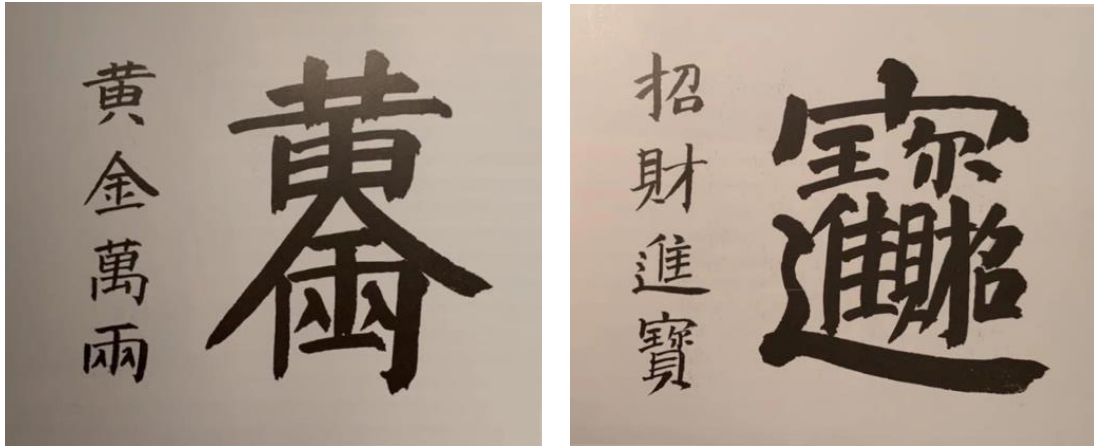 黃金萬兩
招財進寶